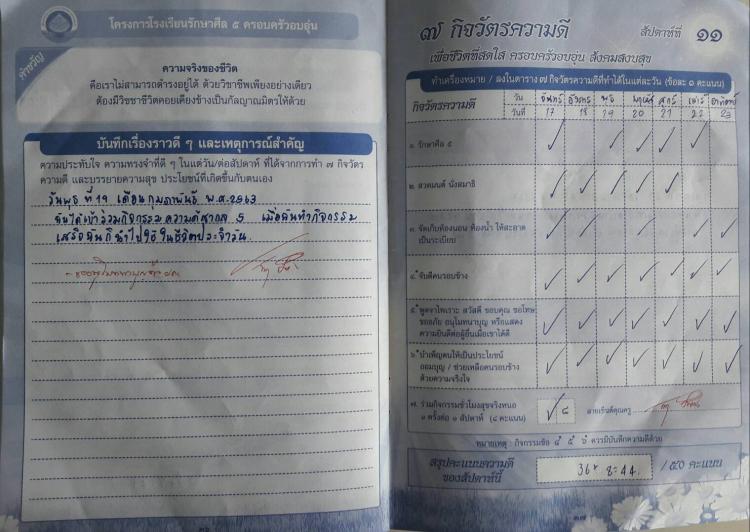 โครงการโรงเรียนรักษาศีล ๕ ครอบครัวอบอุ่น
คำขวัญ
ความจริงของชีวิต
คือเราไม่สามารถดำรงอยู่ได้ ด้วยวิชาชีพเพียงอย่างเดียว
ต้องมีวิชชาชีวิตคอยเคียงข้างเป็นกัลญาณมิตรให้ด้วย
บันทึกเรื่องราวดี ๆ และเหตุการณ์สำคัญ
ความประทับใจ ความทรงจำที่ดี ๆ ในแต่วัน/ต่อสัปดาห์ ที่ได้จากการทำ ๗ กิจวัตร
ความดี และบรรยายความสุข ประโยชน์ที่เกิดขึ้นกับตนเอง
วันพุธ ที่ 19 เดือน กุมภาพันธ์ พ.ศ.2563
ฉันได้เข้าร่วมกิจกรรมความดีสากล 5 เมื่อฉันทำกิจกรรม
เสร็จฉันก็นำไปใช้ในชีวิตประจำวัน
๓๖
๗ กิจวัตรความดี
สัปดาห์ที่ ๑๑
เพื่อชีวิตที่สดใส ครอบครัวอบอุ่น สังคมสงบสุข
ทำเครื่องหมาย / ลงในตาราง ๗ กิจวัตรความดีที่ทำได้ในแต่ละวัน (ข้อละ ๑ คะแนน)
กิจวัตรความดี
วัน จันทร์ อังคาร พุธ พฤหัส ศุกร์ เสาร์ อาทิตย์
วันที่ 17 18 19 20 21 22 23
๑. รักษาศีล ๕ / / / / /
๒. สวดมนต์ นั่งสมาธิ
๓. จัดเก็บห้องนอน ห้องน้ำ ให้สะอาด
เป็นระเบียบ
๔. จับดีคนรอบข้าง
๕. พูดจาไพเราะ สวัสดี ขอบคุณ ขอโทษ
ขออภัย อนุโมทนาบุญ หรือแสดง
ความยินดีต่อผู้อื่นเมื่อเขาได้ดี
๖. บำเพ็ญตนให้เป็นประโยชน์
ออมบุญ / ช่วยเหลือคนรอบข้าง
ด้วยความจริงใจ
๗. ร่วมกิจกรรมชั่วโมงสุขจริงหนอ
๑ ครั้งต่อ ๑ สัปดาห์ (๘ คะแนน)
/ ๘
ลายเซ็นต์คุณครู
หมายเหตุ : กิจกรรมข้อ ๔ ๕ ๖ ควรมีบันทึกความดีด้วย
สรุปคะแนนความดี
ของสัปดาห์นี้
36+8=44
/ ๕๐ คะแนน
๓๗